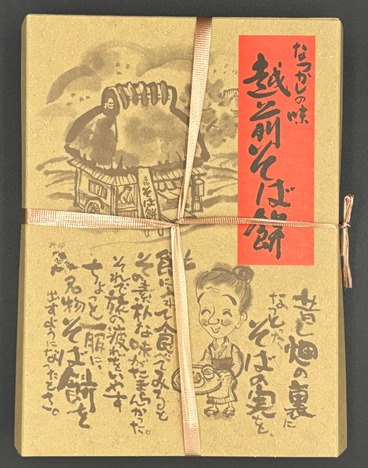 なつかしの味
越前そば餅
そば餅
昔し畑の裏に
なってた
そばの実を、
餅にまぜて食べてみると
その素朴な味がたまらんかった。
それで旅の疲れをいやす
ちょっと一服に、
名物そば餅を
出すようになったとさ。